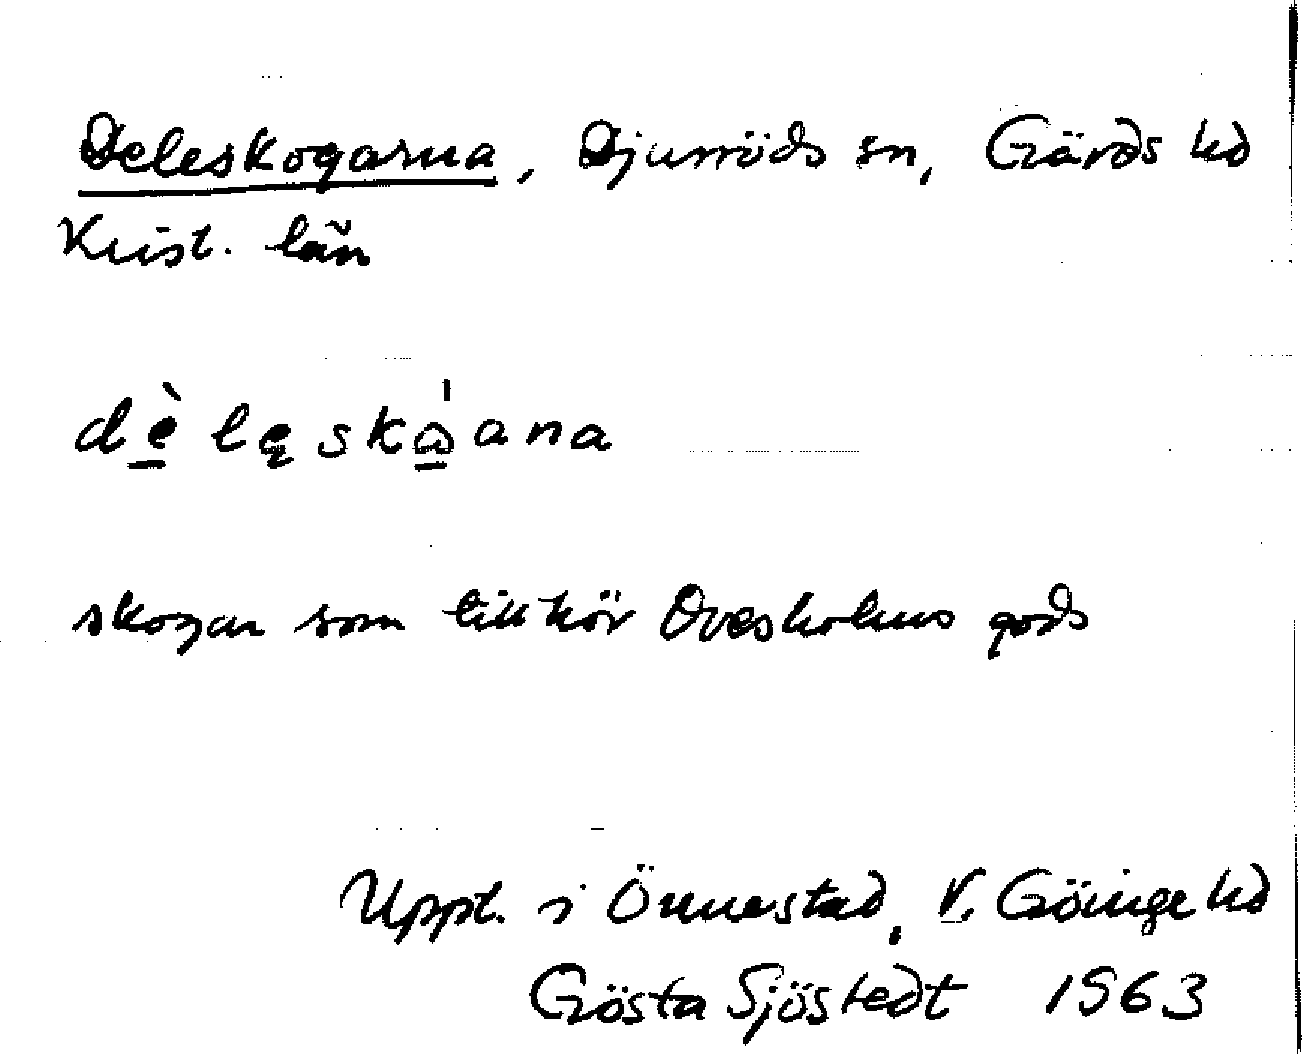 Deleskogarna, Djurröds sn, Gärds hd
Krist. län
dè lęskå̀ana
skogar som tillhör Ovesholms gods
Uppt. i Önnestad, V. Göinge hd
Gösta Sjöstedt 1963